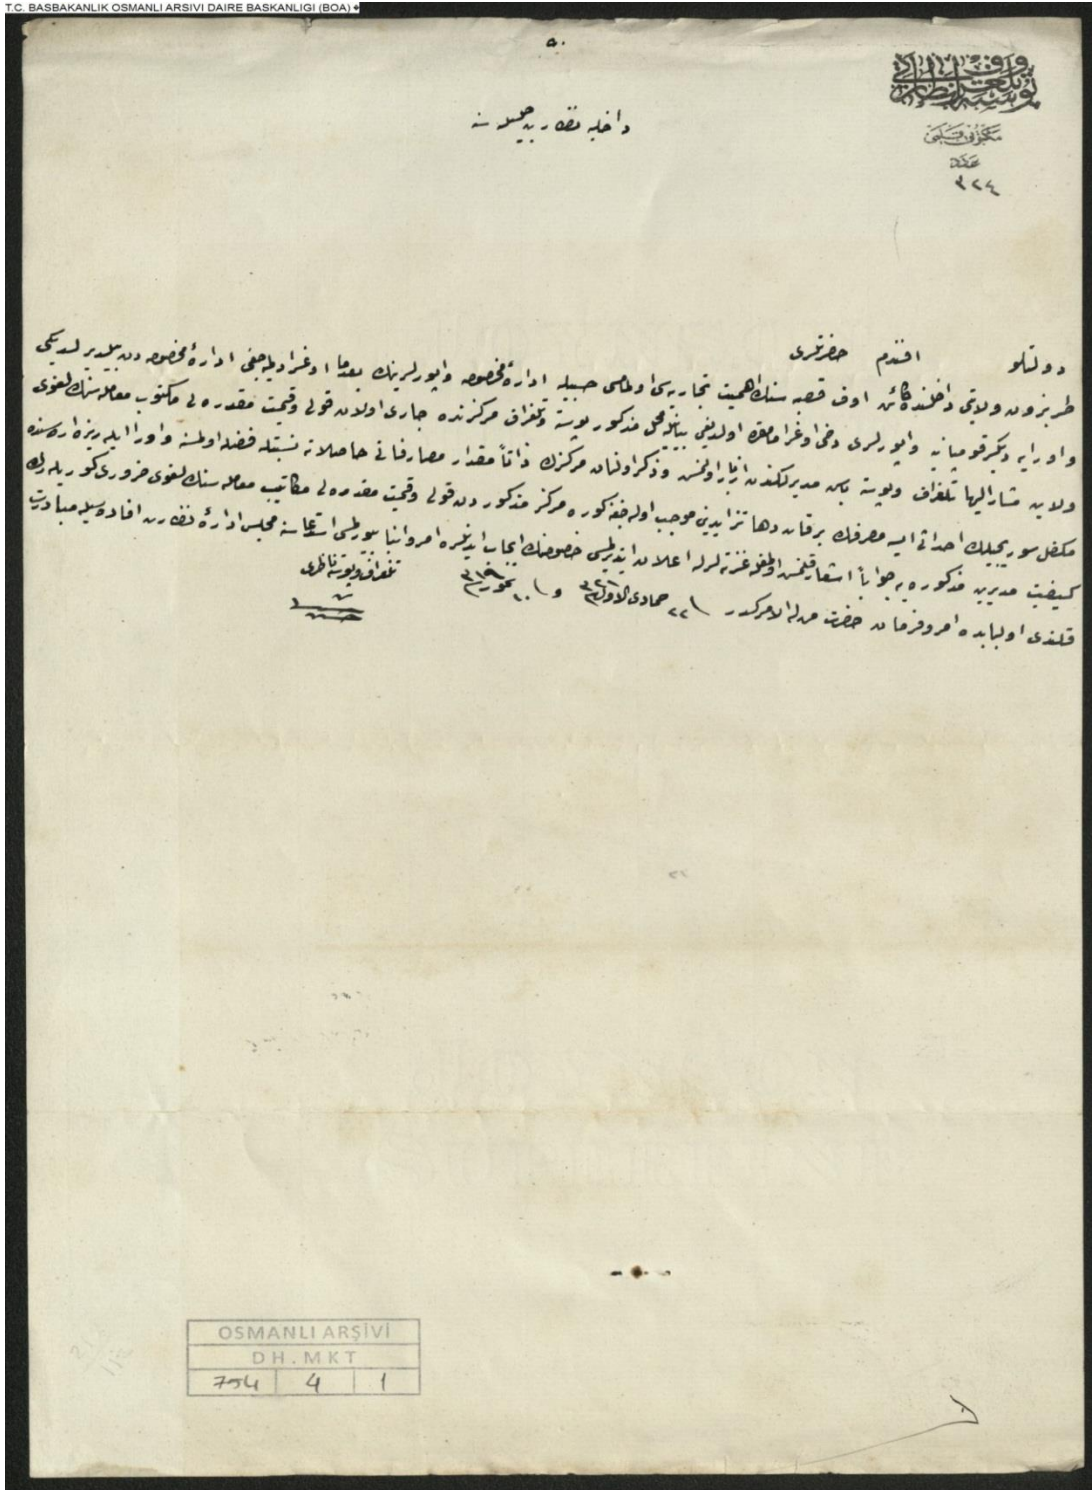 T.C. BASBAKANLIK OSMANLI ARSIVI DAIRE BASKANLIGI (BOA)
تلغراف و پوسته نظارتی
مكتوبی قلمی
عدد
٣٢٤
داخلیه نظارت جلیله سنه
دولتلو افندم حضرتلری
طربزون ولایتی داخلنده كائن اوف قصبه سنك اهمیت تجاریه سی اولمامسی حسبیله ادارهٔ مخصوصه واپورلرینك بعدما اوغرادیلمیه جغی ادارهٔ مخصوصه دن بیلدیرلدیكی
و اورایه دیگر قومپانیه واپورلری دخی اوغرامامقده اولدیغی بیانیله محل مذكور پوسته و تلغراف مركزنده جاری اولان قولی و قیمت مقدره لی مكتوب معامله سنك لغوی
ولایت مشار الیها تلغراف و پوسته باش مدیرلكندن اولنمش و ذكر اولنان مركزك ذاتاً مقدار مصارفاتی حاصلاته نسبتله فضله اولمسنه و اورا ایله ریزه اره سنده
مكمل سوریجیلك احداثی ایسه مصرفك برقات دها تزایدینی موجب اوله جغنه كوره مركز مذكوردن قولی و قیمت مقدره لی مكاتیب معامله سنك لغوی ضروری كوریله رك
كیفیت مدیریت مذكوره یه جواباً اشعار قلنمش اولمغله غزته لرله اعلان ایتدیرلمسی خصوصنك ایجاب ایدنلره امر و انبا بیورلمسی استدعاسنه مجلس ادارهٔ نظارت افاده سیله مبادرت
قلندی اولبابده امر و فرمان حضرت من له الامركدر فی ٢٢ جمادی الاول ٣٢١ و فی ٢ تموز ٣١٩
تلغراف و پوسته ناظری
OSMANLI ARŞİVİ
DH.MKT
754 4 1